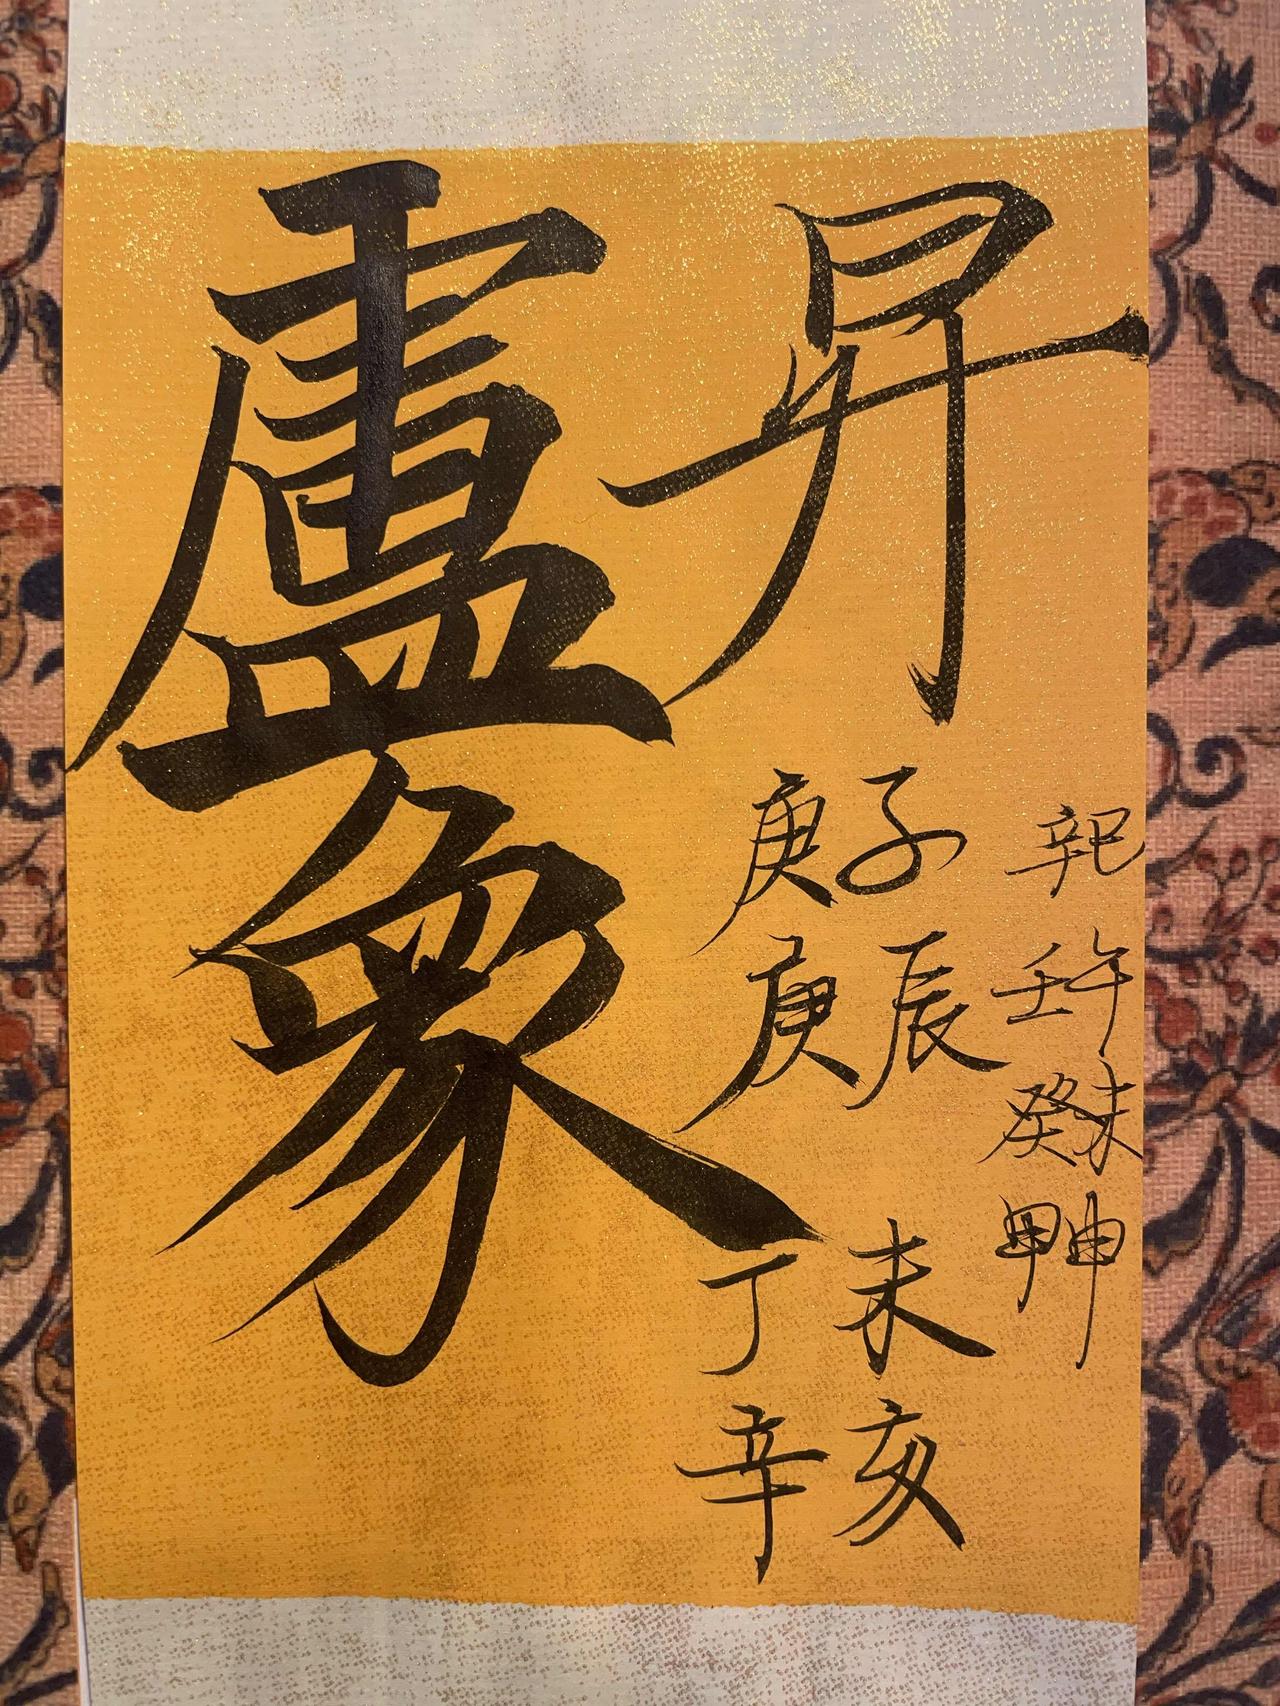 昇
盧象
辛巳
壬午
癸未
甲申
庚子
庚辰
丁未
辛亥